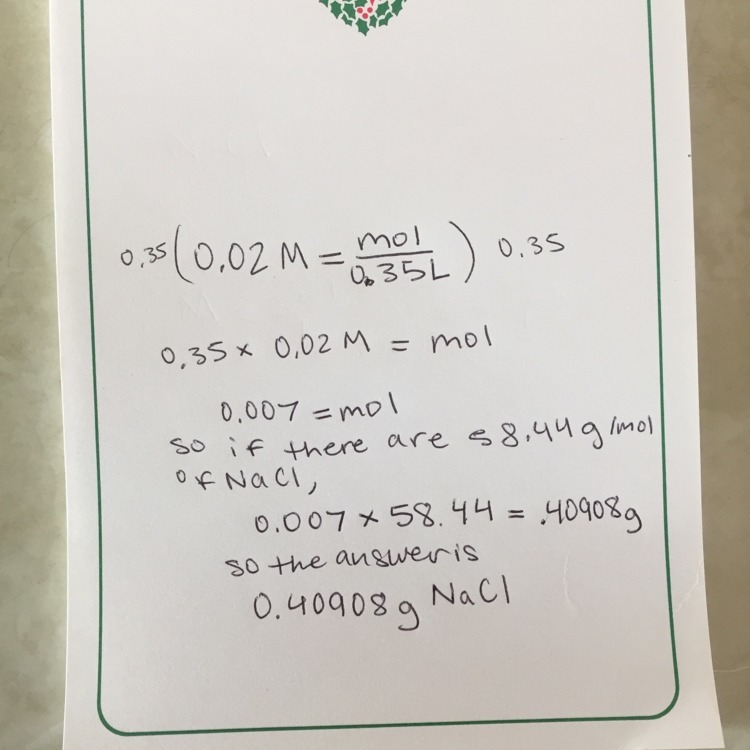 0.35 (0.02 M = mol/0.35L) 0.35
0.35 × 0.02 M = mol
0.007 = mol
so if there are 58.44 g/mol
of NaCl,
0.007 × 58.44 = .40908g
so the answer is
0.40908g NaCl